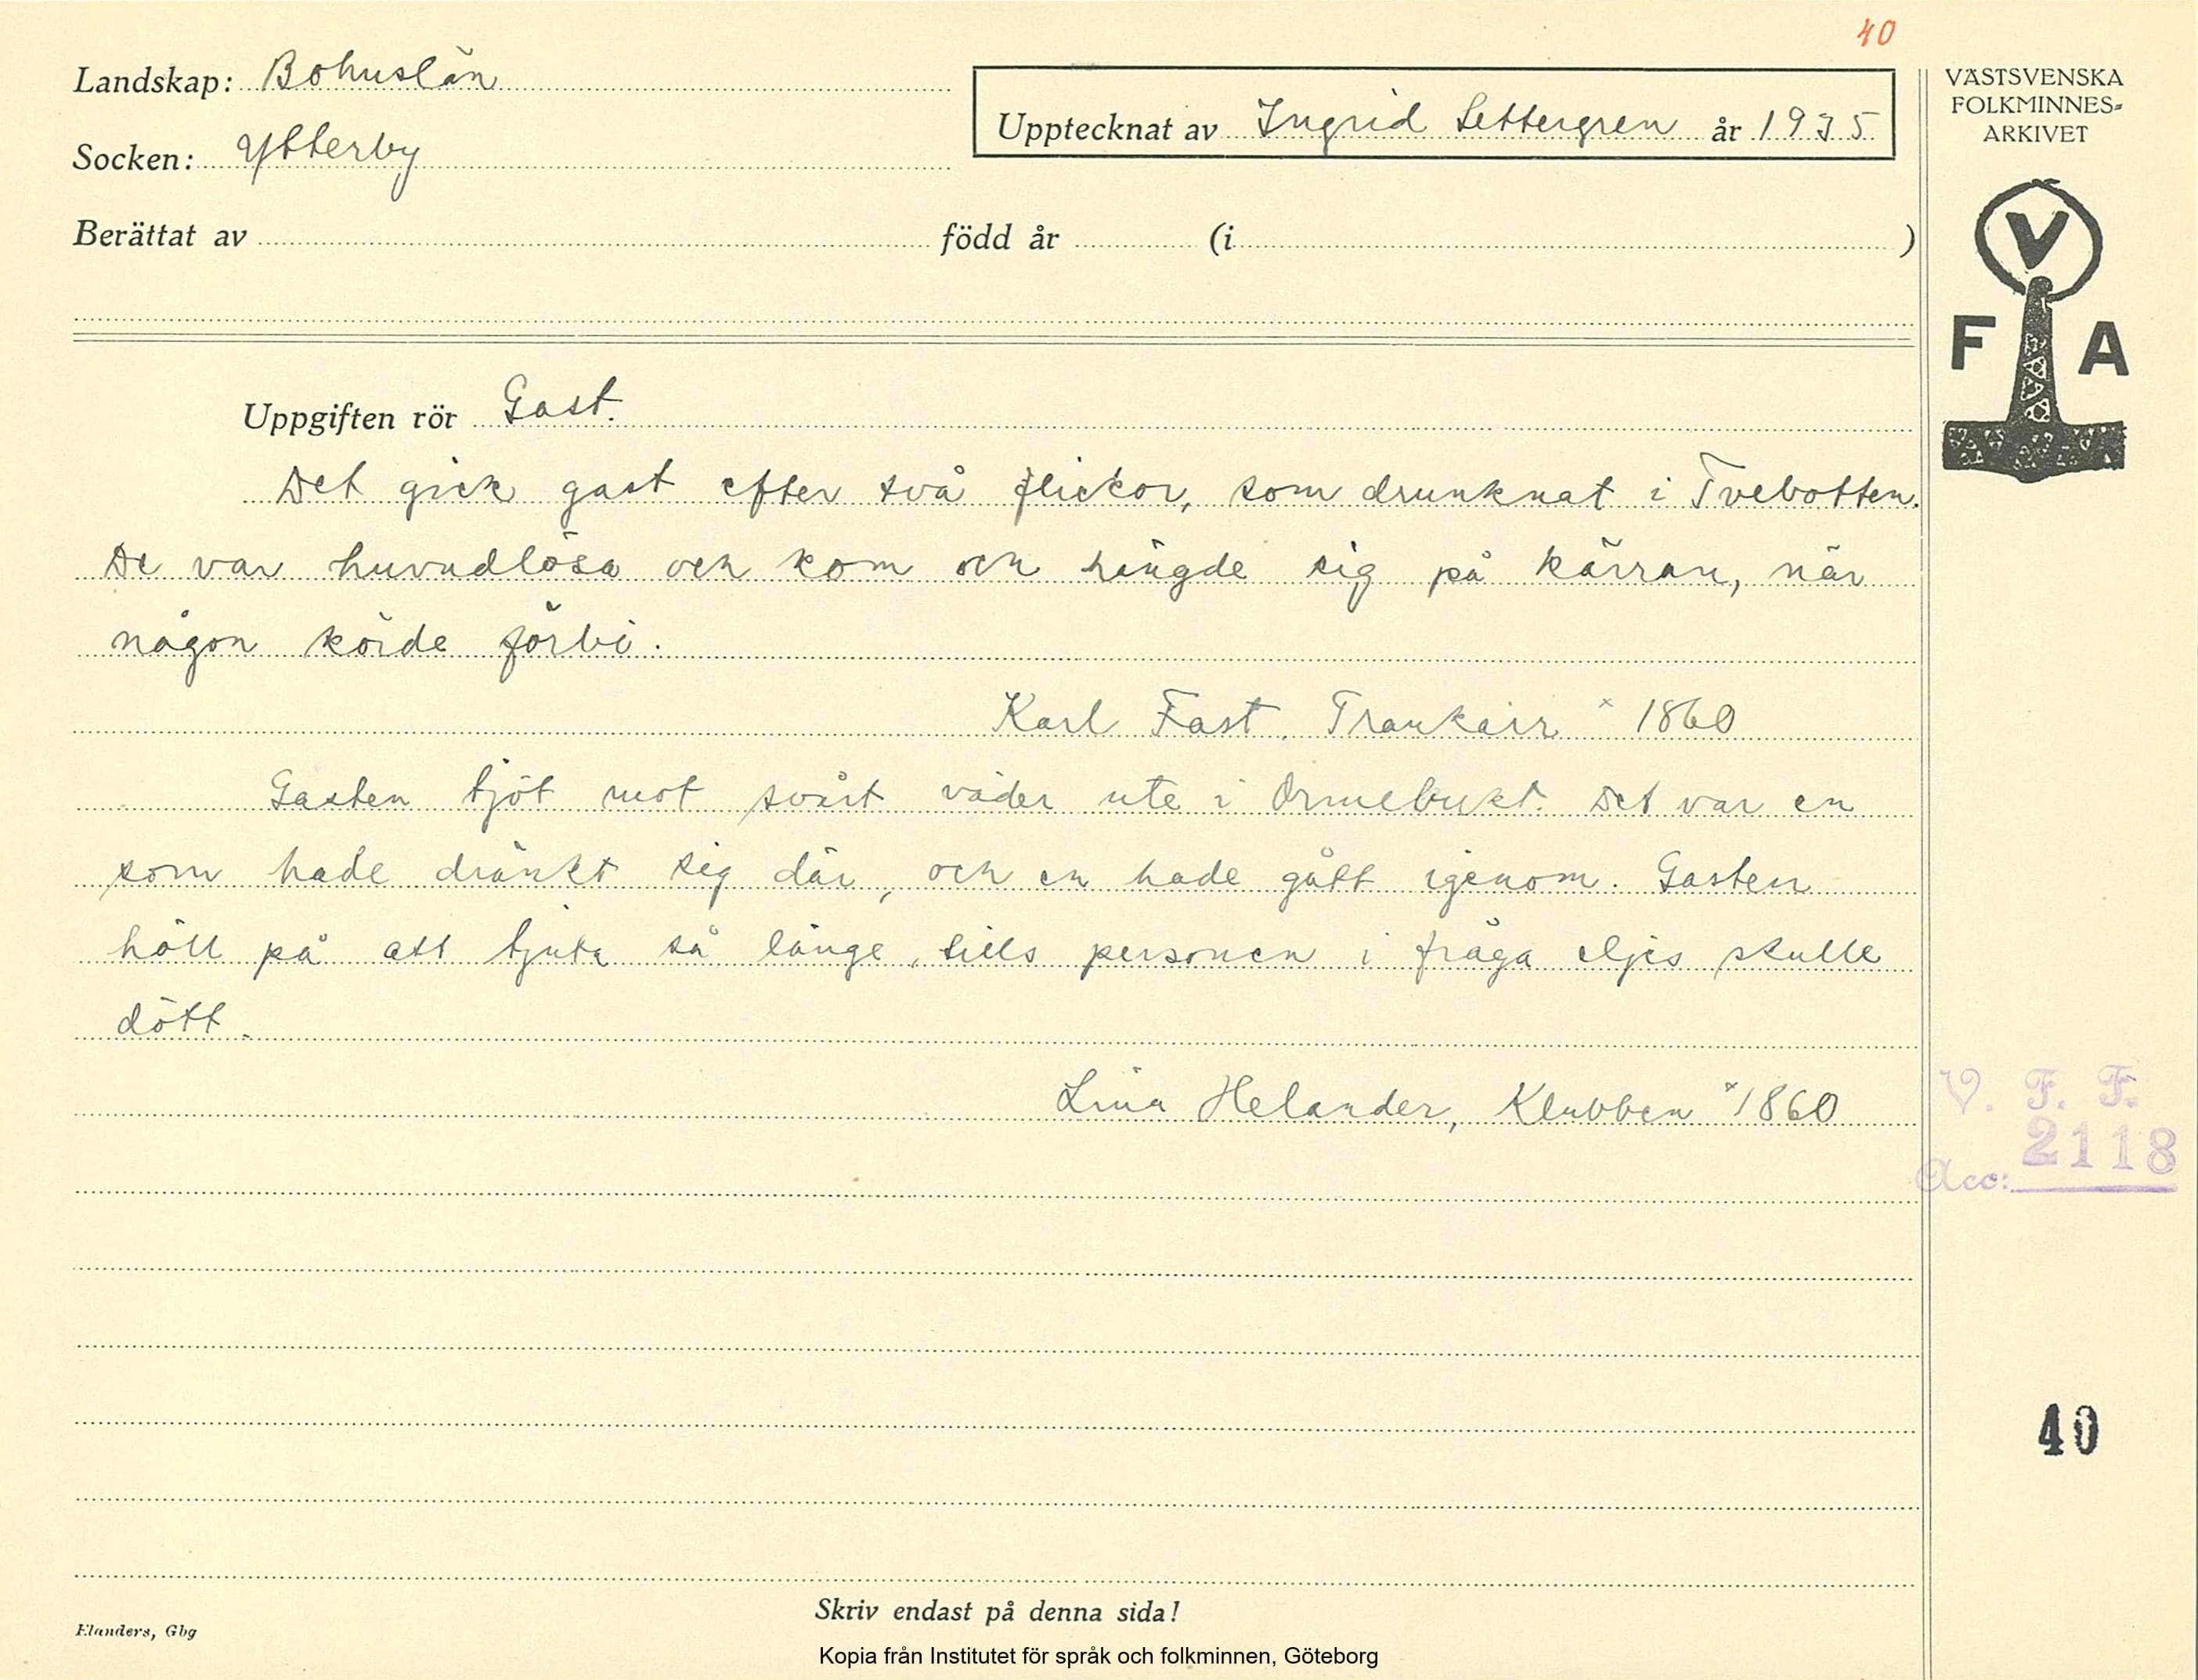 40
Landskap: Bohuslän
Socken: Ytterby
Upptecknat av Ingrid Settergren år 1935
Berättat av född år (i )
VÄSTSVENSKA
FOLKMINNES-
ARKIVET
V
F A
Uppgiften rör Gast.
Det gick gast efter två flickor, som drunknat i Tvebotten.
De var huvudlösa och kom och hängde sig på kärran, när
någon körde förbi.
Karl Fast, Trankärr × 1860
Gasten tjöt mot svårt väder ute i Ormebukt. Det var en
som hade dränkt sig där, och en hade gått igenom. Gasten
höll på att tjuta så länge, tills personen i fråga eljes skulle
dött.
Lina Helander, Klubben × 1860
V. F. F.
Acc: 2118
40
Skriv endast på denna sida!
Elanders, Gbg
Kopia från Institutet för språk och folkminnen, Göteborg